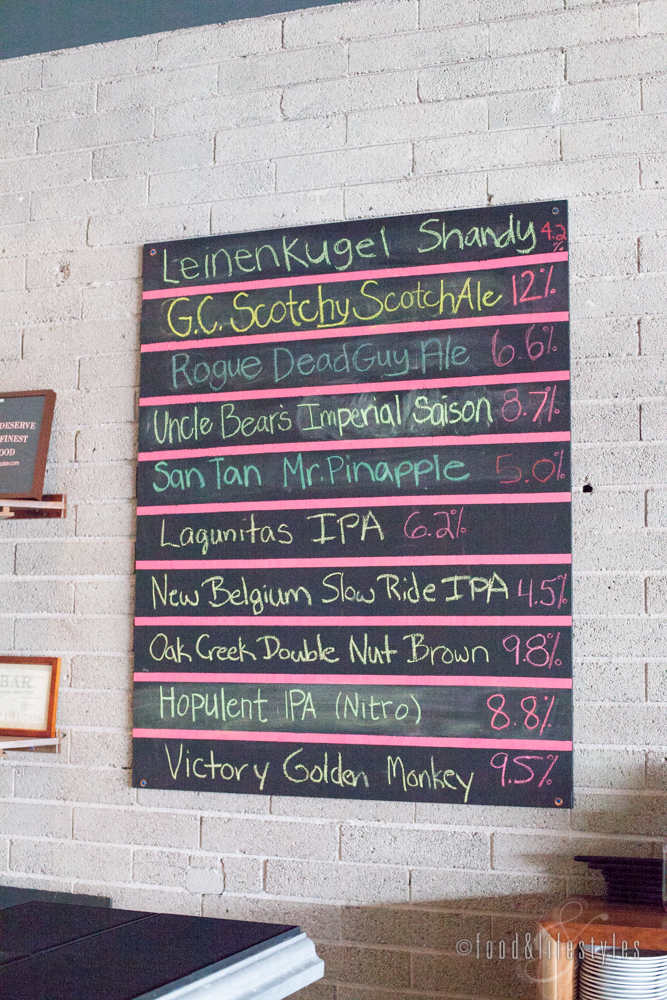 Leinenkugel Shandy 4.2%
G.C. Scotchy Scotch Ale 12%
Rogue Dead Guy Ale 6.6%
Uncle Bear's Imperial Saison 8.7%
San Tan Mr. Pinapple 5.0%
Lagunitas IPA 6.2%
New Belgium Slow Ride IPA 4.5%
Oak Creek Double Nut Brown 9.8%
Hopulent IPA (Nitro) 8.8%
Victory Golden Monkey 9.5%
DESERVE
FINEST
OOD
BAR
©food&lifestyles